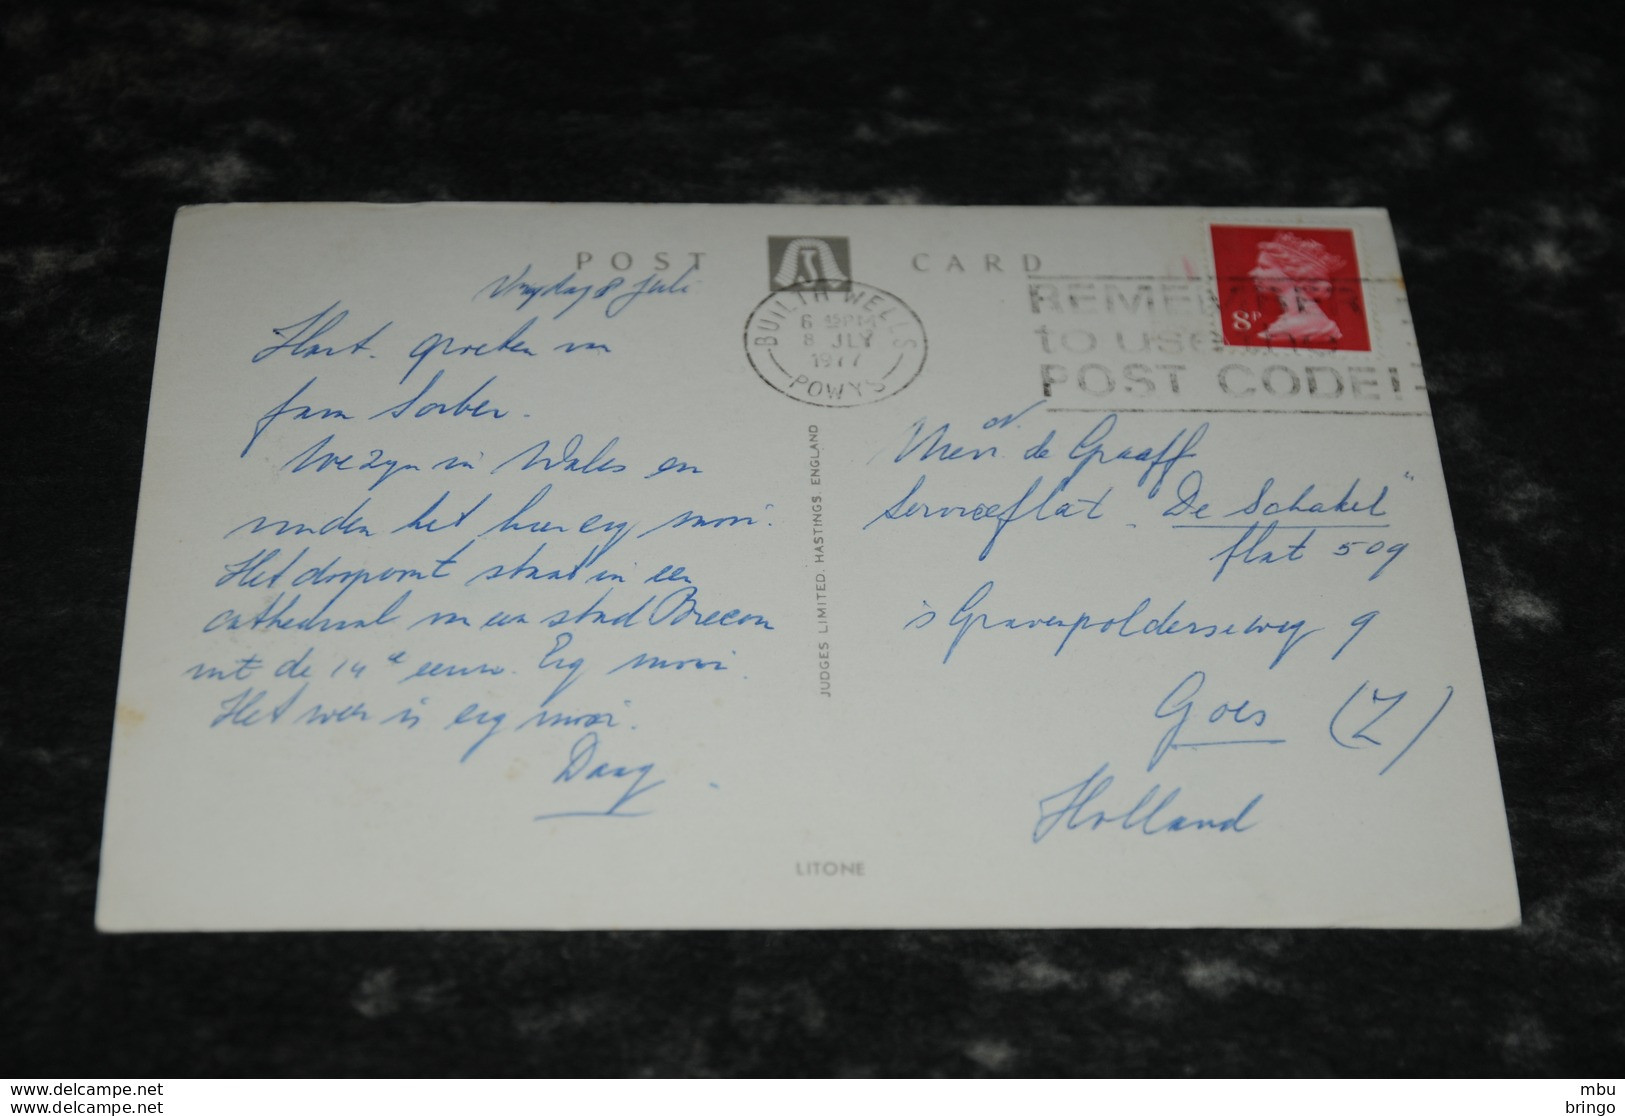 POST CARD
Vrydag 8 Juli
Hart. groeten van
fam Sorber.
We zyn in Wales en
vinden het hier erg mooi.
Het doopvont staat in een
cathedraal in een stad Brecon
uit de 14de eeuw. Erg mooi.
Het weer is erg mooi.
Daag
BUILTH WELLS
6 PM
8 JLY
1977
POWYS
REMEMBER
to USE THE
POST CODE!
8P
JUDGES LIMITED. HASTINGS. ENGLAND
Mevr. de Graaff
Serviceflat De Schakel"
flat 509
's Gravenpolderseweg 9
Goes (Z)
Holland
LITONE
www.delcampe.net
www.delcampe.net
mbu
bringo